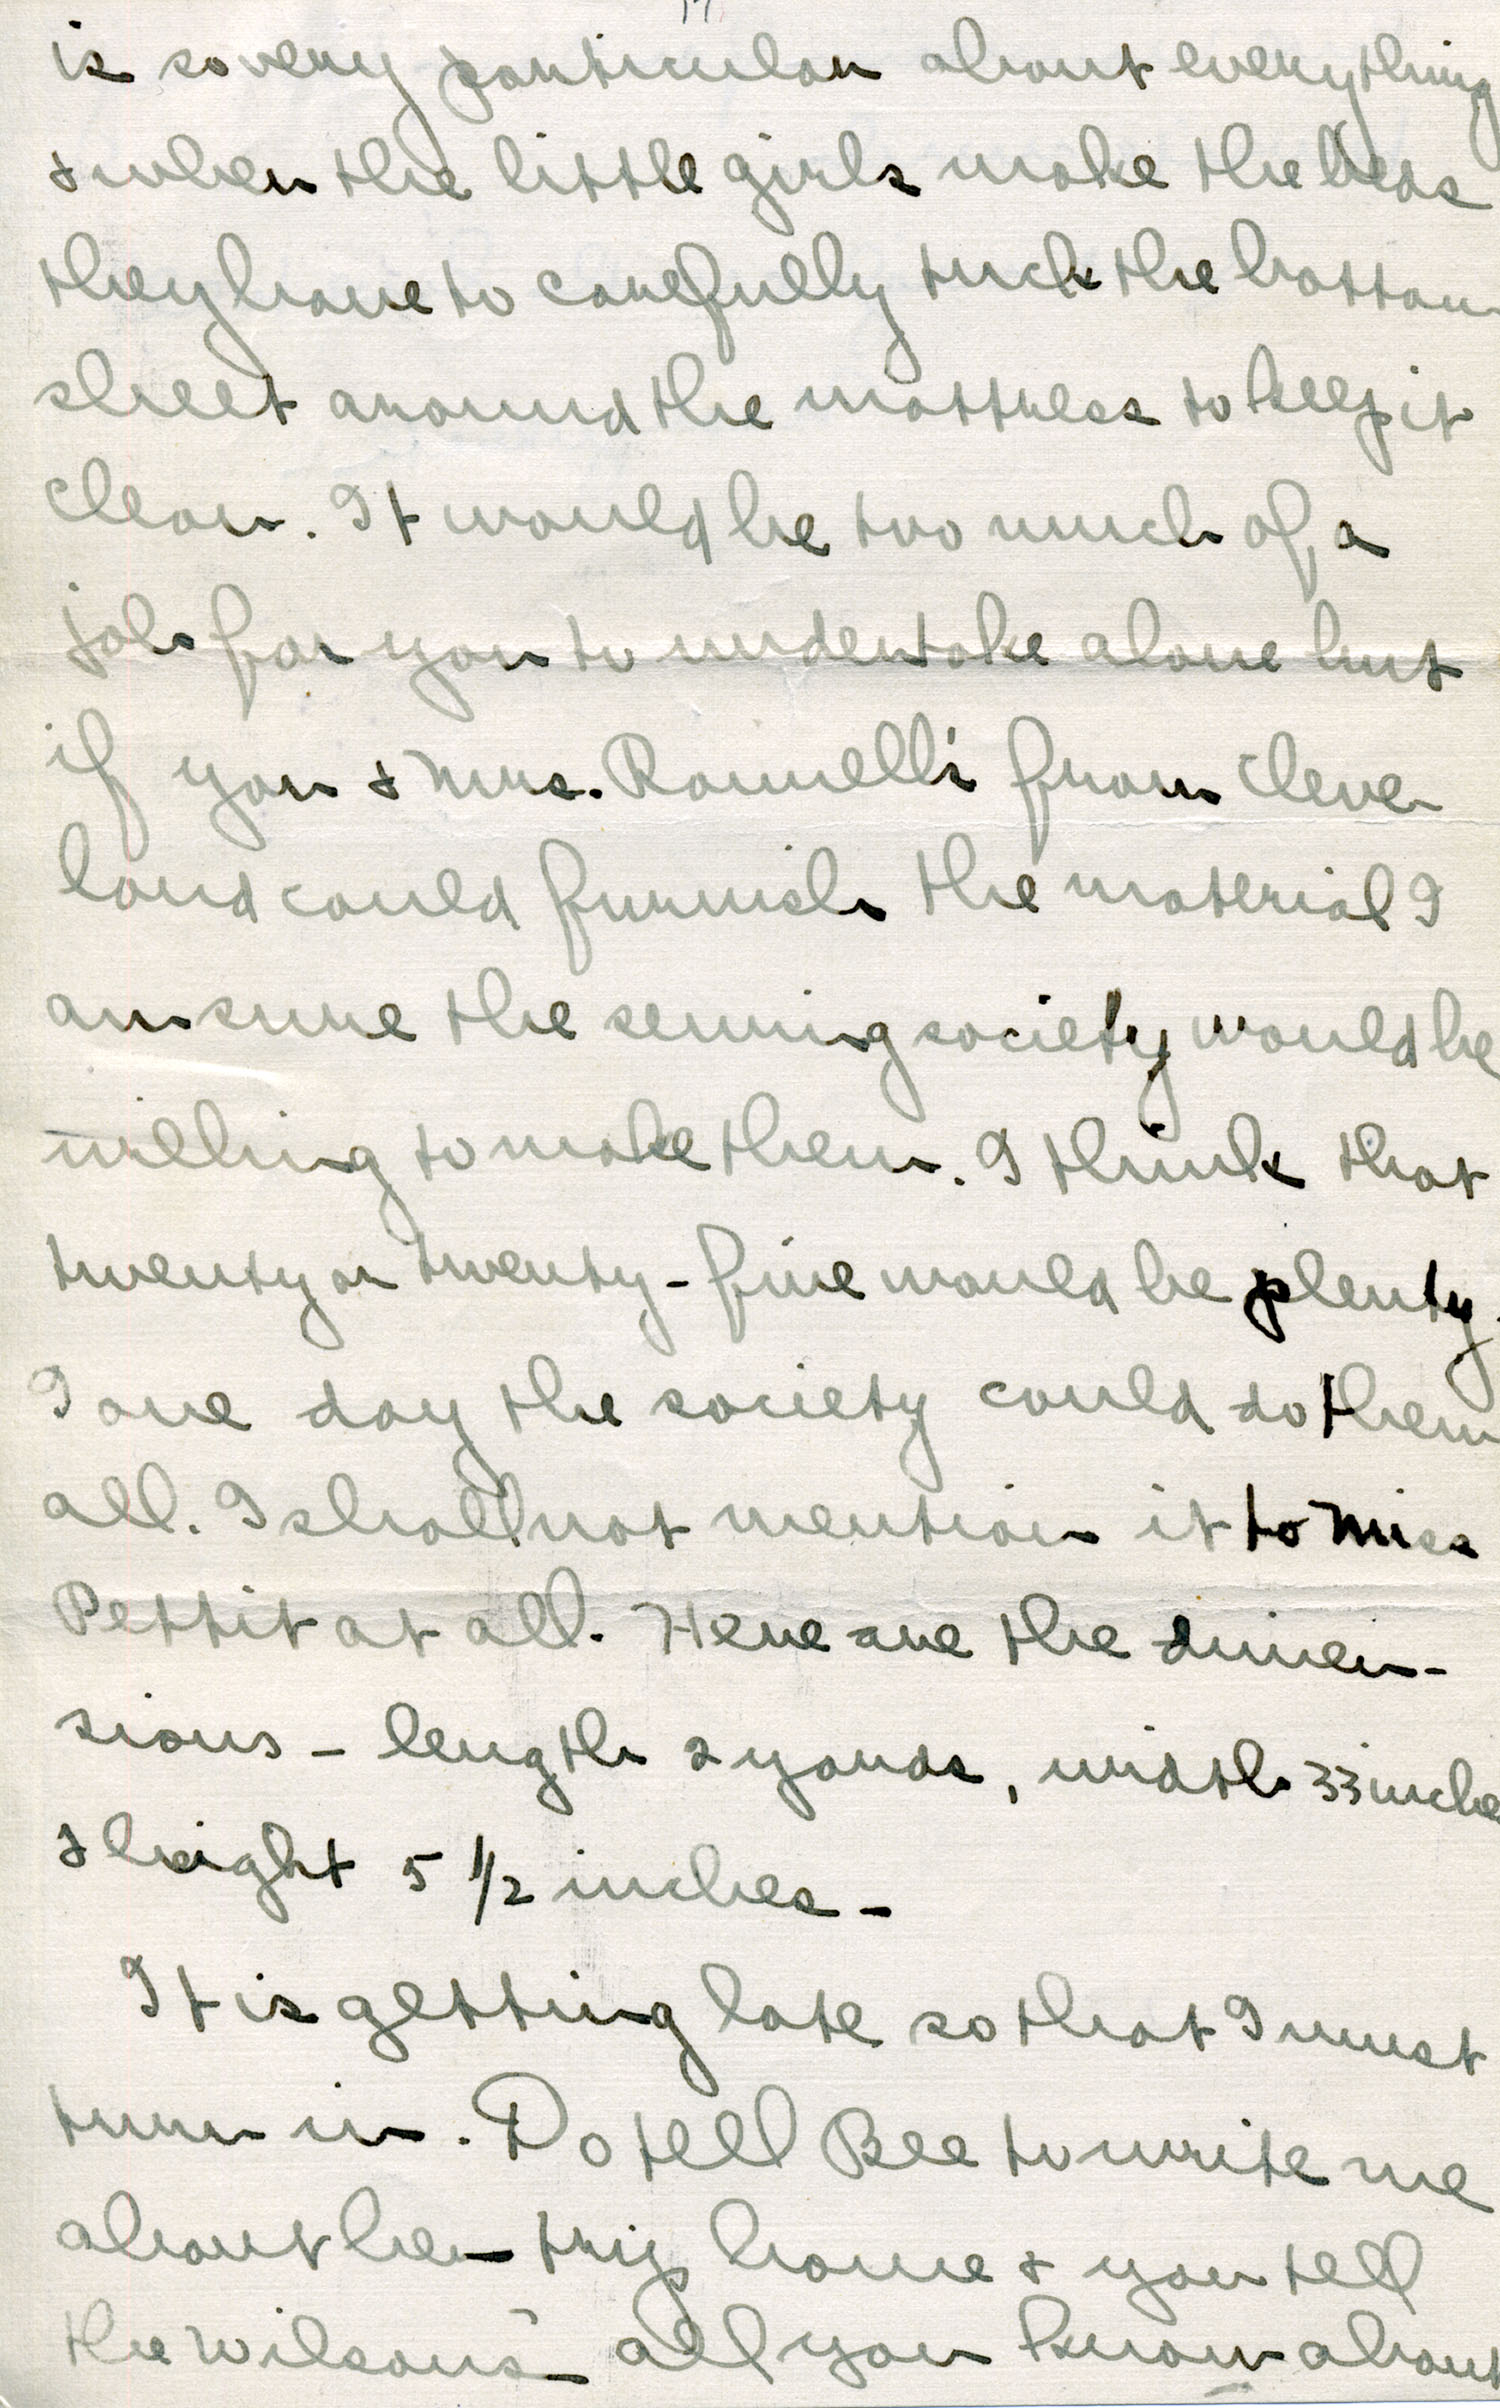 is so very particular about everything
& when the little girls make the beds
they have to carefully tuck the bottom
sheet around the mattress to keep it
clean. It would be too much of a
job for you to undertake alone but
if you & Mrs. Rowell's from Cleve-
land could furnish the material I
am sure the sewing society would be
willing to make them. I think that
twenty or twenty-five would be plenty.
I one day the society could do them
all. I shall not mention it to Miss
Pettit at all. Here are the dimen-
sions - length 2 yards, width 33 inches
& height 5 1/2 inches -
It is getting late so that I must
turn in. Do tell Bee to write me
about her trip home & you tell
the Wilsons' all you know about